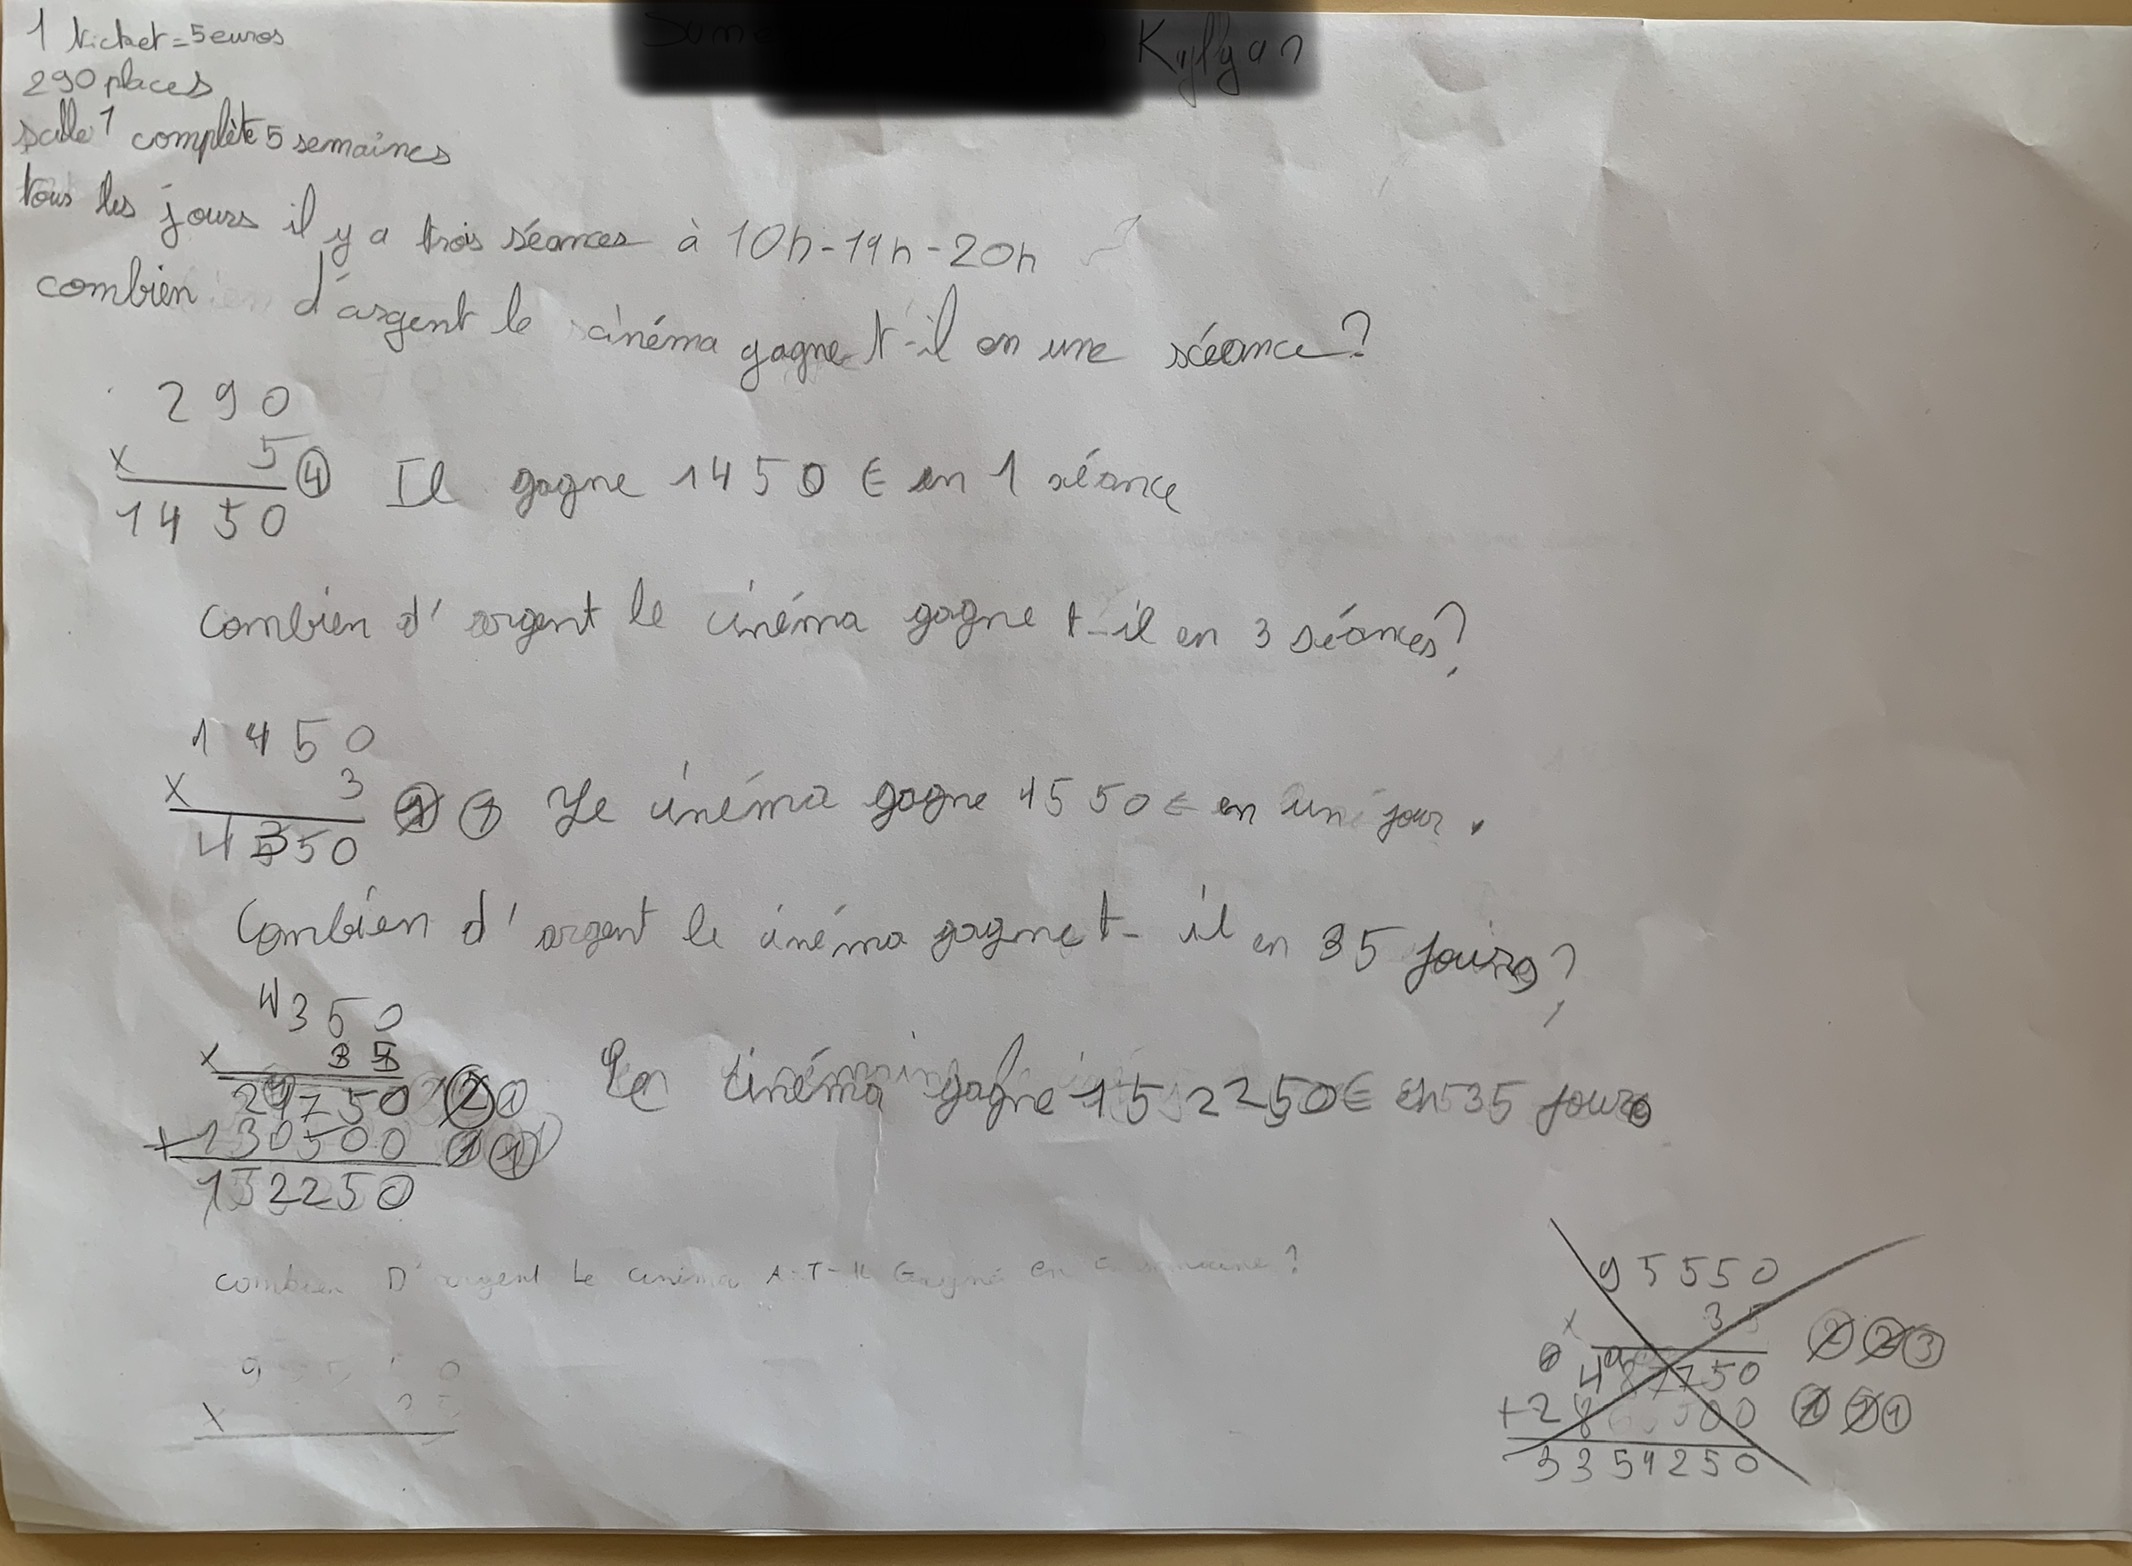 Kyllyan
1 ticket = 5 euros
290 places
salle 1 complète 5 semaines
tous les jours il y a trois séances à 10h-14h-20h
combien d'argent le cinéma gagne t-il en une scéance?
290
x 5 ④
1450
Il gagne 1450 € en 1 séance
Combien d'argent le cinéma gagne t-il en 3 séances?
1450
x 3
4350
Le cinéma gagne 4550 € en un jour.
Combien d'argent le cinéma gagne t-il en 35 jours?
4350
x 35
21750
+130500
152250
Le cinéma gagne 152250€ en 35 jours
combien D'argent Le cinéma A-T-IL Gagné en semaine?
x
95550
x 35
750
+2 500
3354250